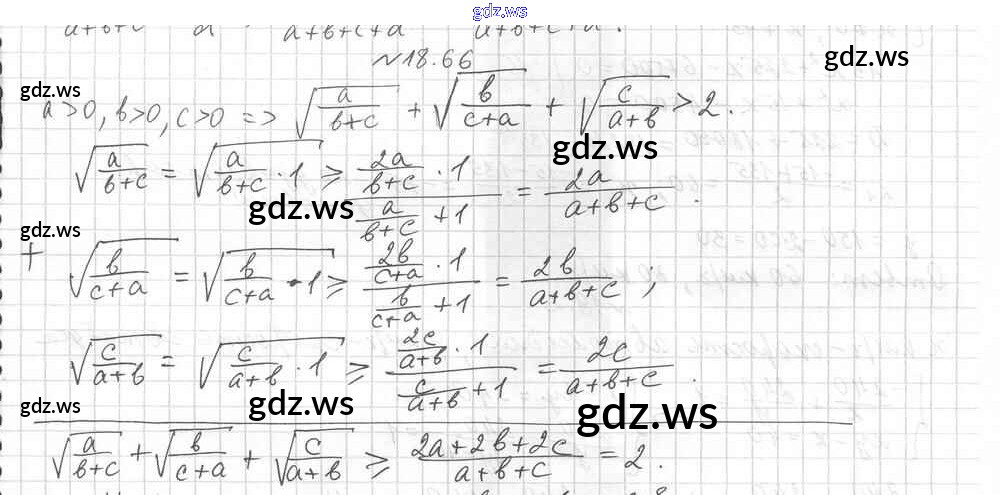 gdz.ws
№18.66
gdz.ws
gdz.ws
a>0, b>0, c>0 => √(a/(b+c)) + √(b/(c+a)) + √(c/(a+b)) > 2.
gdz.ws
√(a/(b+c)) = √(a/(b+c) · 1) ≥ (2a/(b+c) · 1)/(a/(b+c) + 1) = 2a/(a+b+c).
gdz.ws
gdz.ws
+ √(b/(c+a)) = √(b/(c+a) · 1) ≥ (2b/(c+a) · 1)/(b/(c+a) + 1) = 2b/(a+b+c);
√(c/(a+b)) = √(c/(a+b) · 1) ≥ (2c/(a+b) · 1)/(c/(a+b) + 1) = 2c/(a+b+c).
gdz.ws
gdz.ws
gdz.ws
√(a/(b+c)) + √(b/(c+a)) + √(c/(a+b)) ≥ (2a+2b+2c)/(a+b+c) = 2.